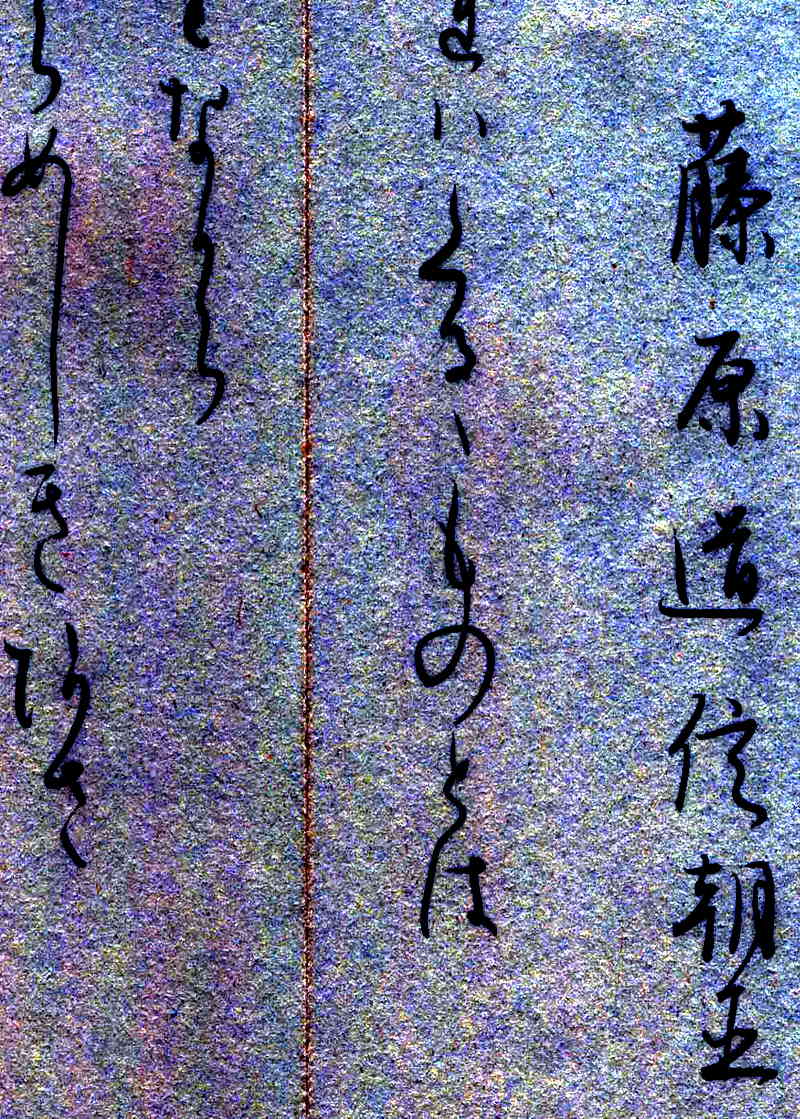 藤原道信朝臣
れはくるゝものとは
なから
らめしきあさ